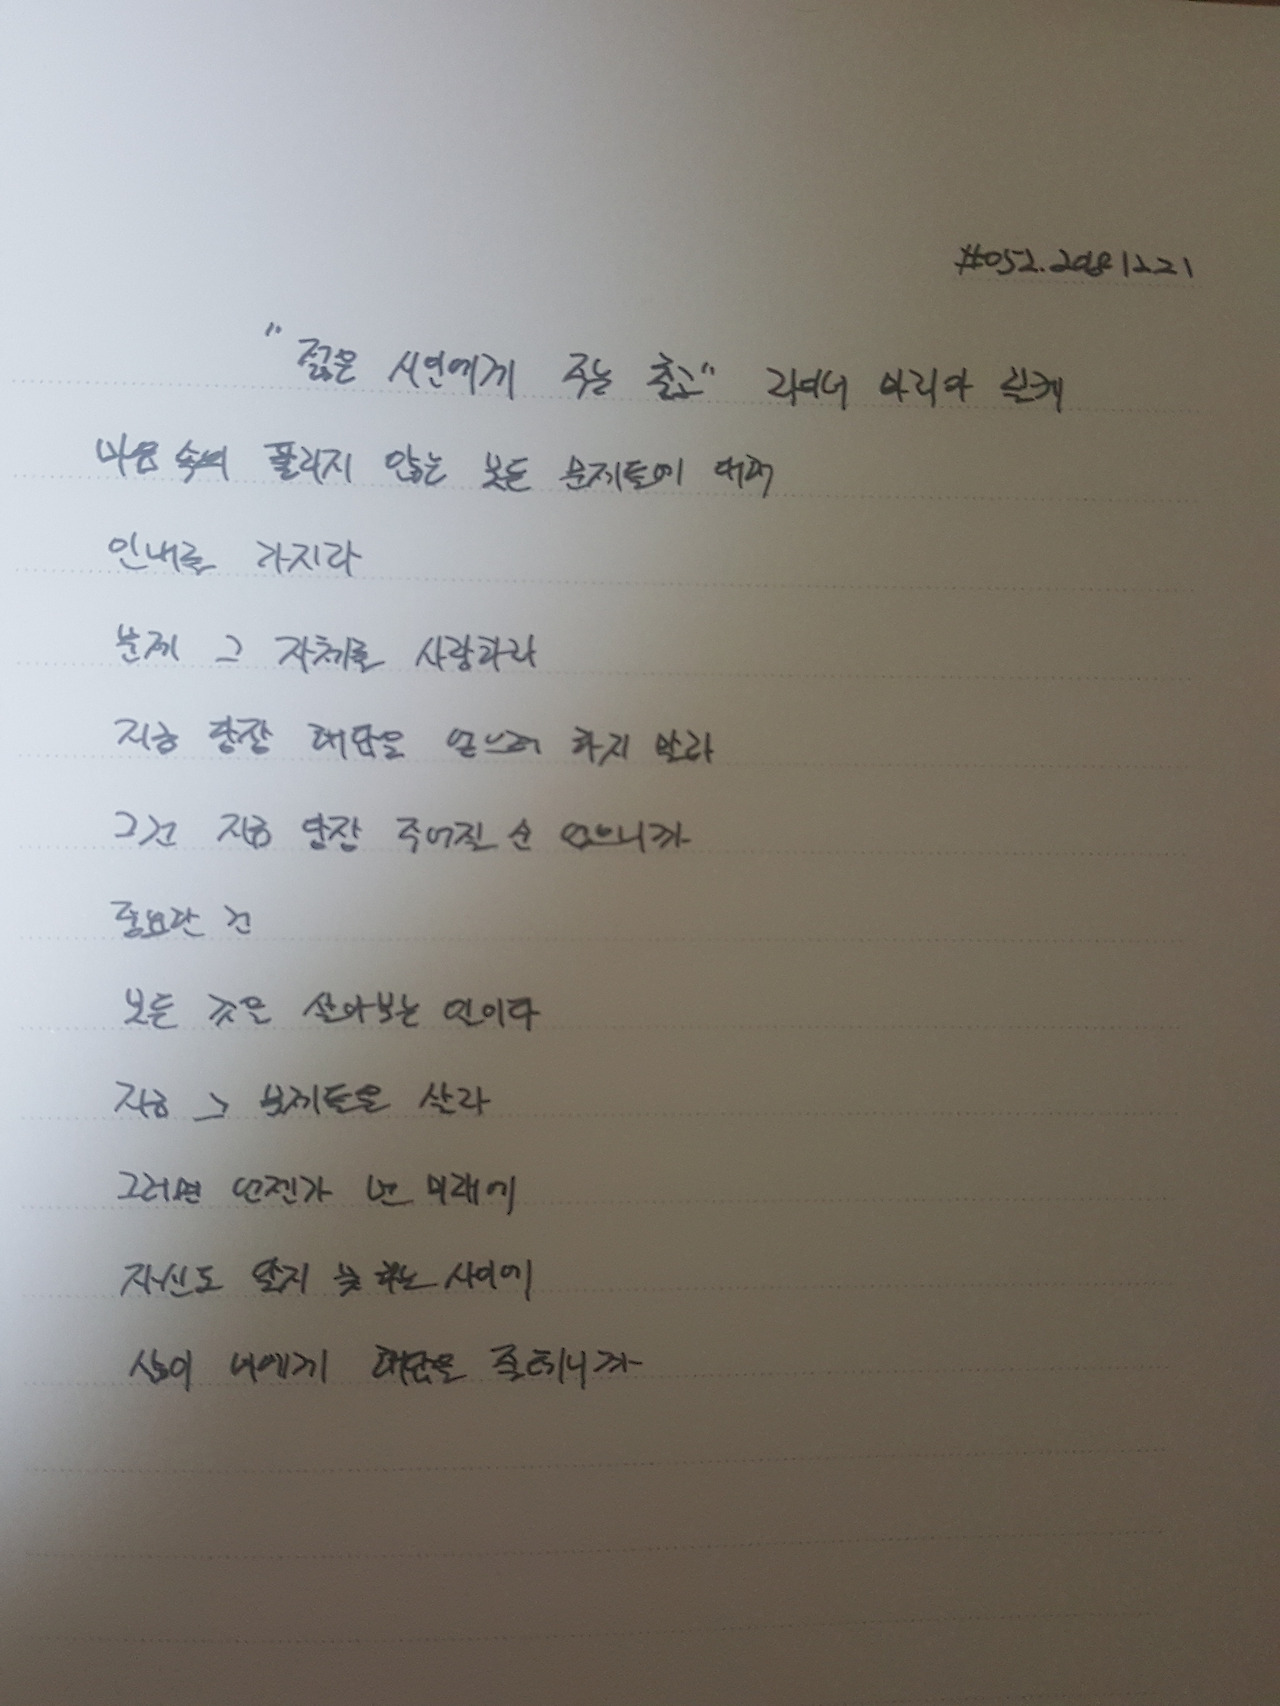 #052.20181221
"젊은 시인에게 주는 충고" 라이너 마리아 릴케
마음 속의 풀리지 않는 모든 문제들에 대해
인내를 가지라
문제 그 자체를 사랑하라
지금 당장 해답을 얻으려 하지 말라
그건 지금 당장 주어질 순 없으니까
중요한 건
모든 것을 살아보는 일이다
지금 그 문제들을 살라
그러면 언젠가 먼 미래에
자신도 알지 못하는 사이에
삶이 너에게 해답을 줄테니까